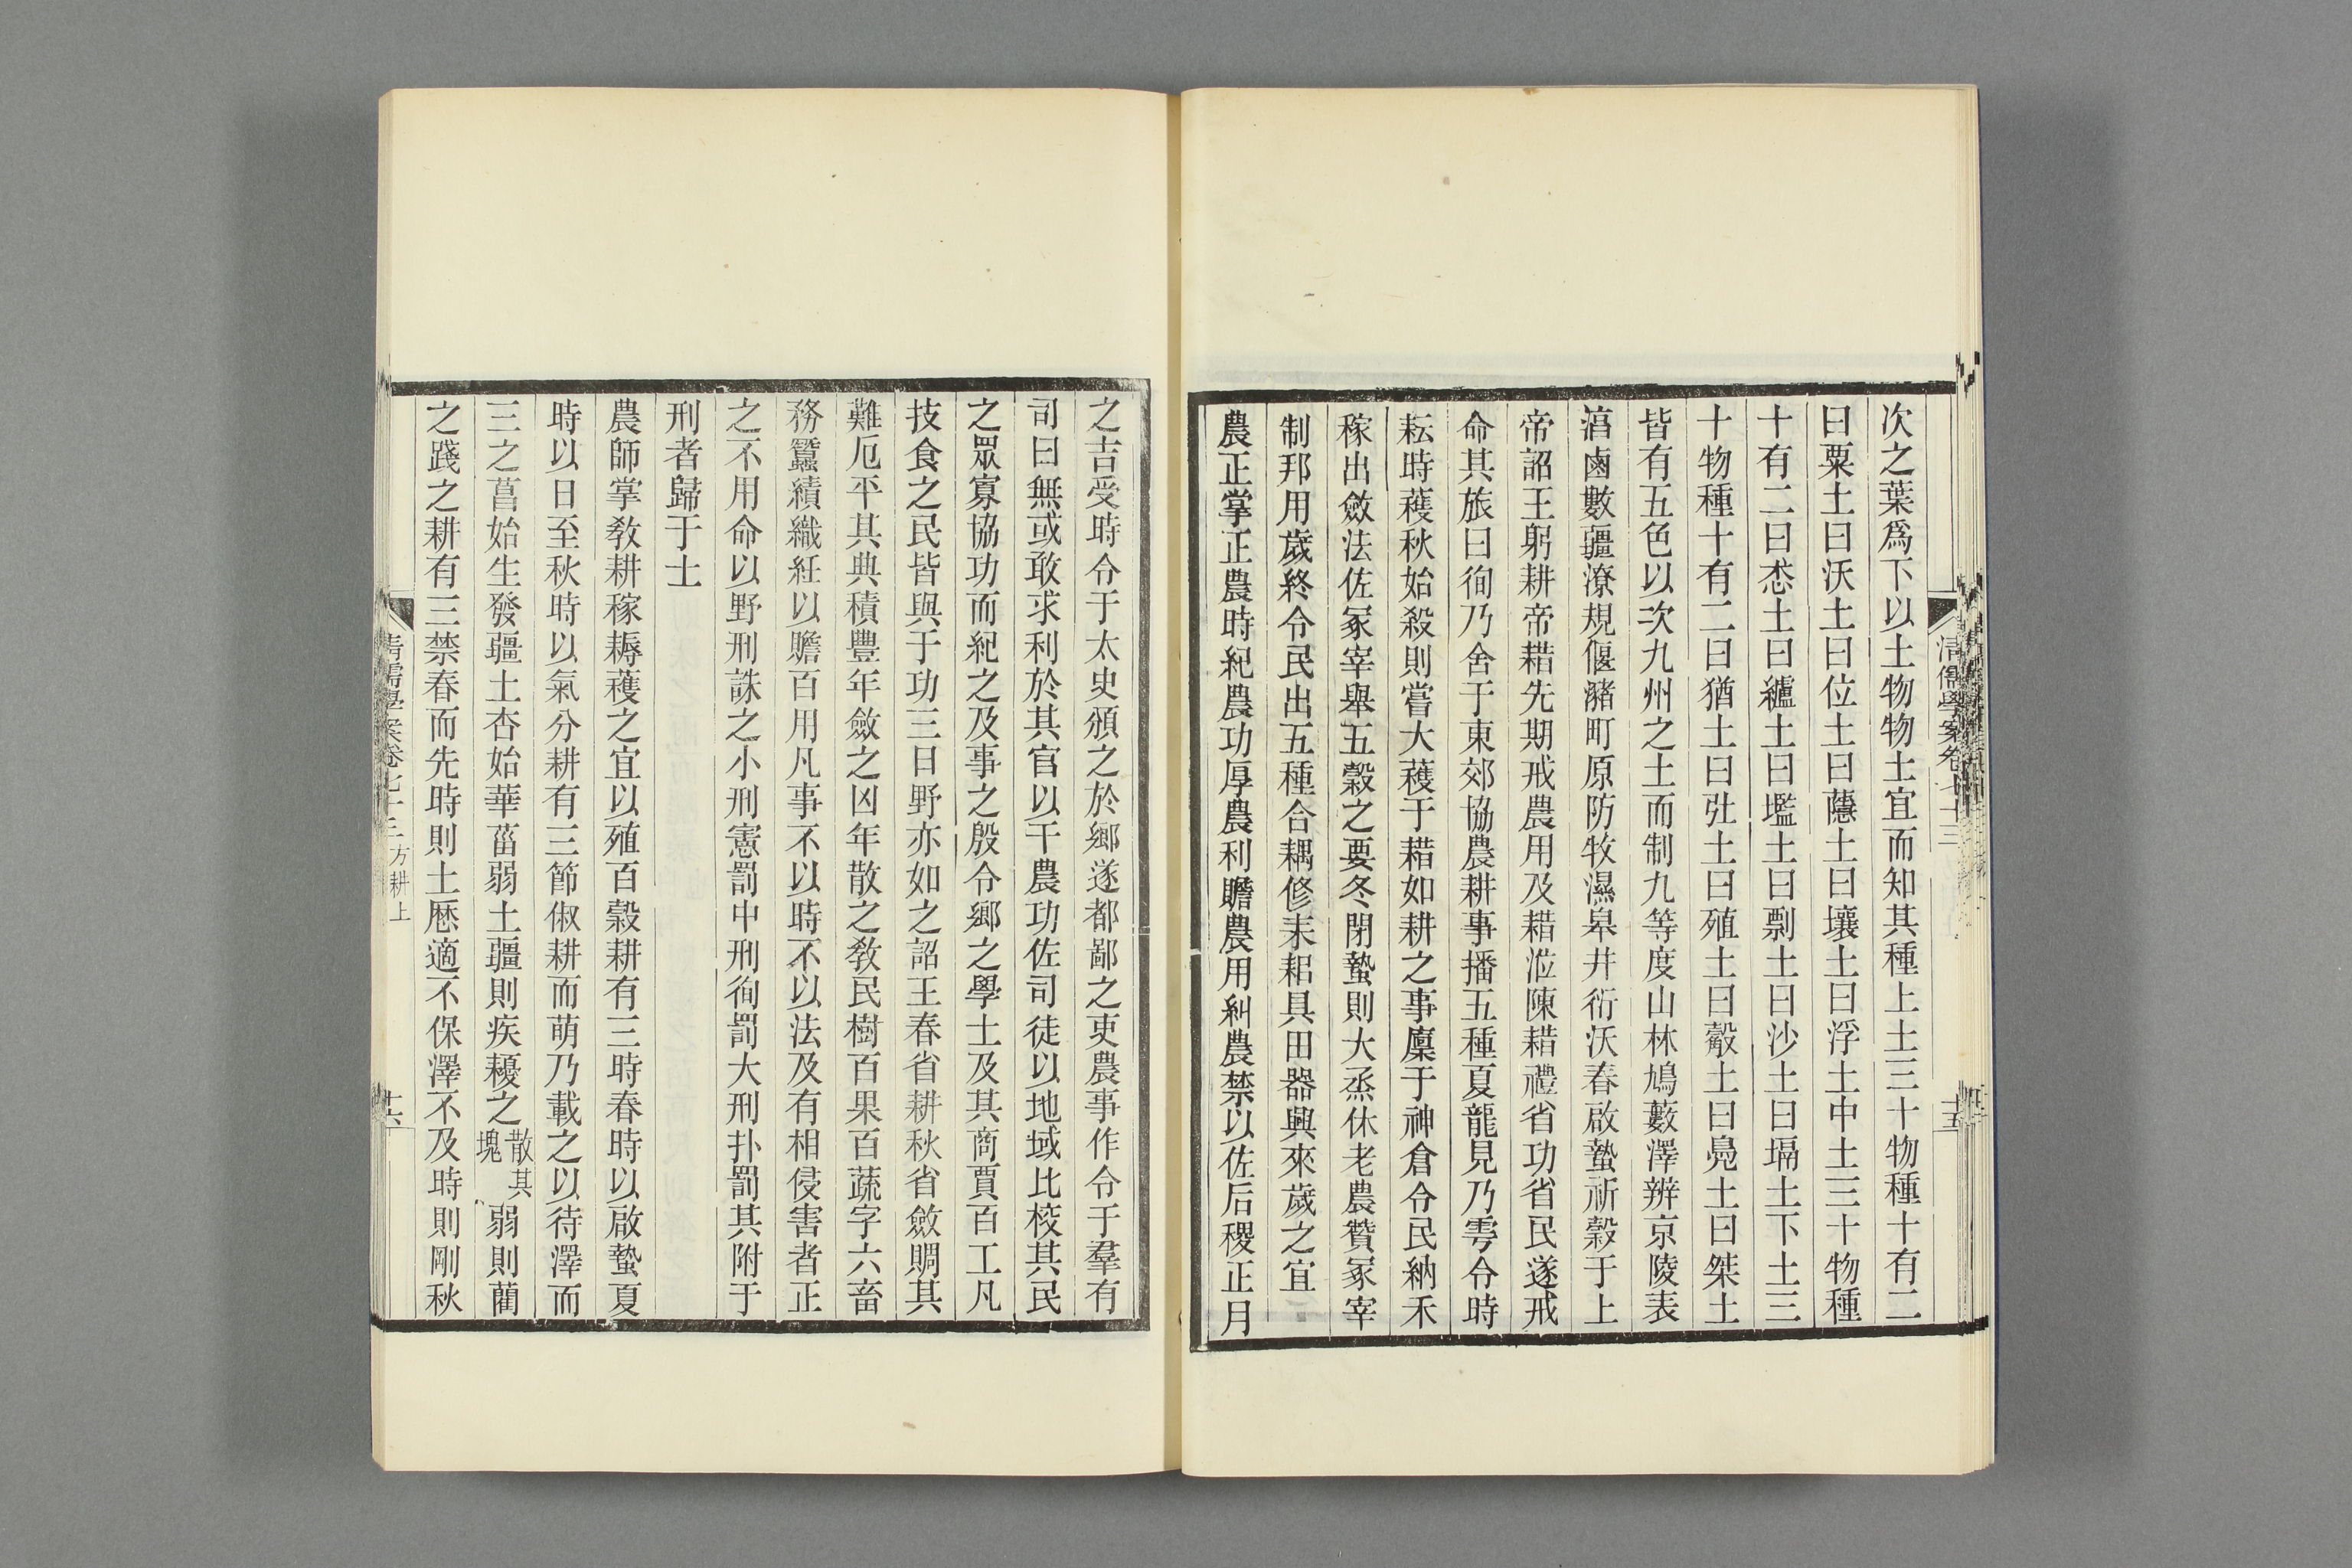 清儒學案卷七十三
十五
次之葉爲下以土物物土宜而知其種上土三十物種十有二
曰粟土曰沃土曰位土曰蘟土曰壤土曰浮土中土三十物種
十有二曰怸土曰纑土曰壏土曰剽土曰沙土曰塥土下土三
十物種十有二曰猶土曰弞土曰殖土曰觳土曰鳧土曰桀土
皆有五色以次九州之土而制九等度山林鳩藪澤辨京陵表
淳鹵數疆潦規偃豬町原防牧濕皋井衍沃春啟蟄祈穀于上
帝詔王躬耕帝耤先期戒農用及耤涖陳耤禮省功省民遂戒
命其旅曰徇乃舍于東郊協農耕事播五種夏龍見乃雩令時
耘時蓘秋始殺則嘗大蓘于耤如耕之事廩于神倉令民納禾
稼出斂法佐冢宰舉五穀之要冬閉蟄則大烝休老農贊冢宰
制邦用歲終令民出五種合耦修耒耜具田器興來歲之宜
農正掌正農時紀農功厚農利贍農用糾農禁以佐后稷正月
之吉受時令于太史頒之於鄉遂都鄙之吏農事作令于羣有
司曰無或敢求利於其官以干農功佐司徒以地域比校其民
之眾寡協功而紀之及事之殷令鄉之學士及其商賈百工凡
技食之民皆與于功三日野亦如之詔王春省耕秋省斂賙其
難厄平其典積豐年斂之凶年散之敎民樹百果百蔬字六畜
務蠶績織紝以贍百用凡事不以時不以法及有相侵害者正
之不用命以野刑誅之小刑憲罰中刑徇罰大刑扑罰其附于
刑者歸于士
農師掌敎耕稼耨蓘之宜以殖百穀耕有三時春時以啟蟄夏
時以日至秋時以氣分耕有三節俶耕而萌乃載之以待澤而
三之菖始生發疆土杏始華菑弱土疆則疾耰之散其塊弱則藺
之踐之耕有三禁春而先時則土歴適不保澤不及時則剛秋
清儒學案卷七十三 方耕上
十六